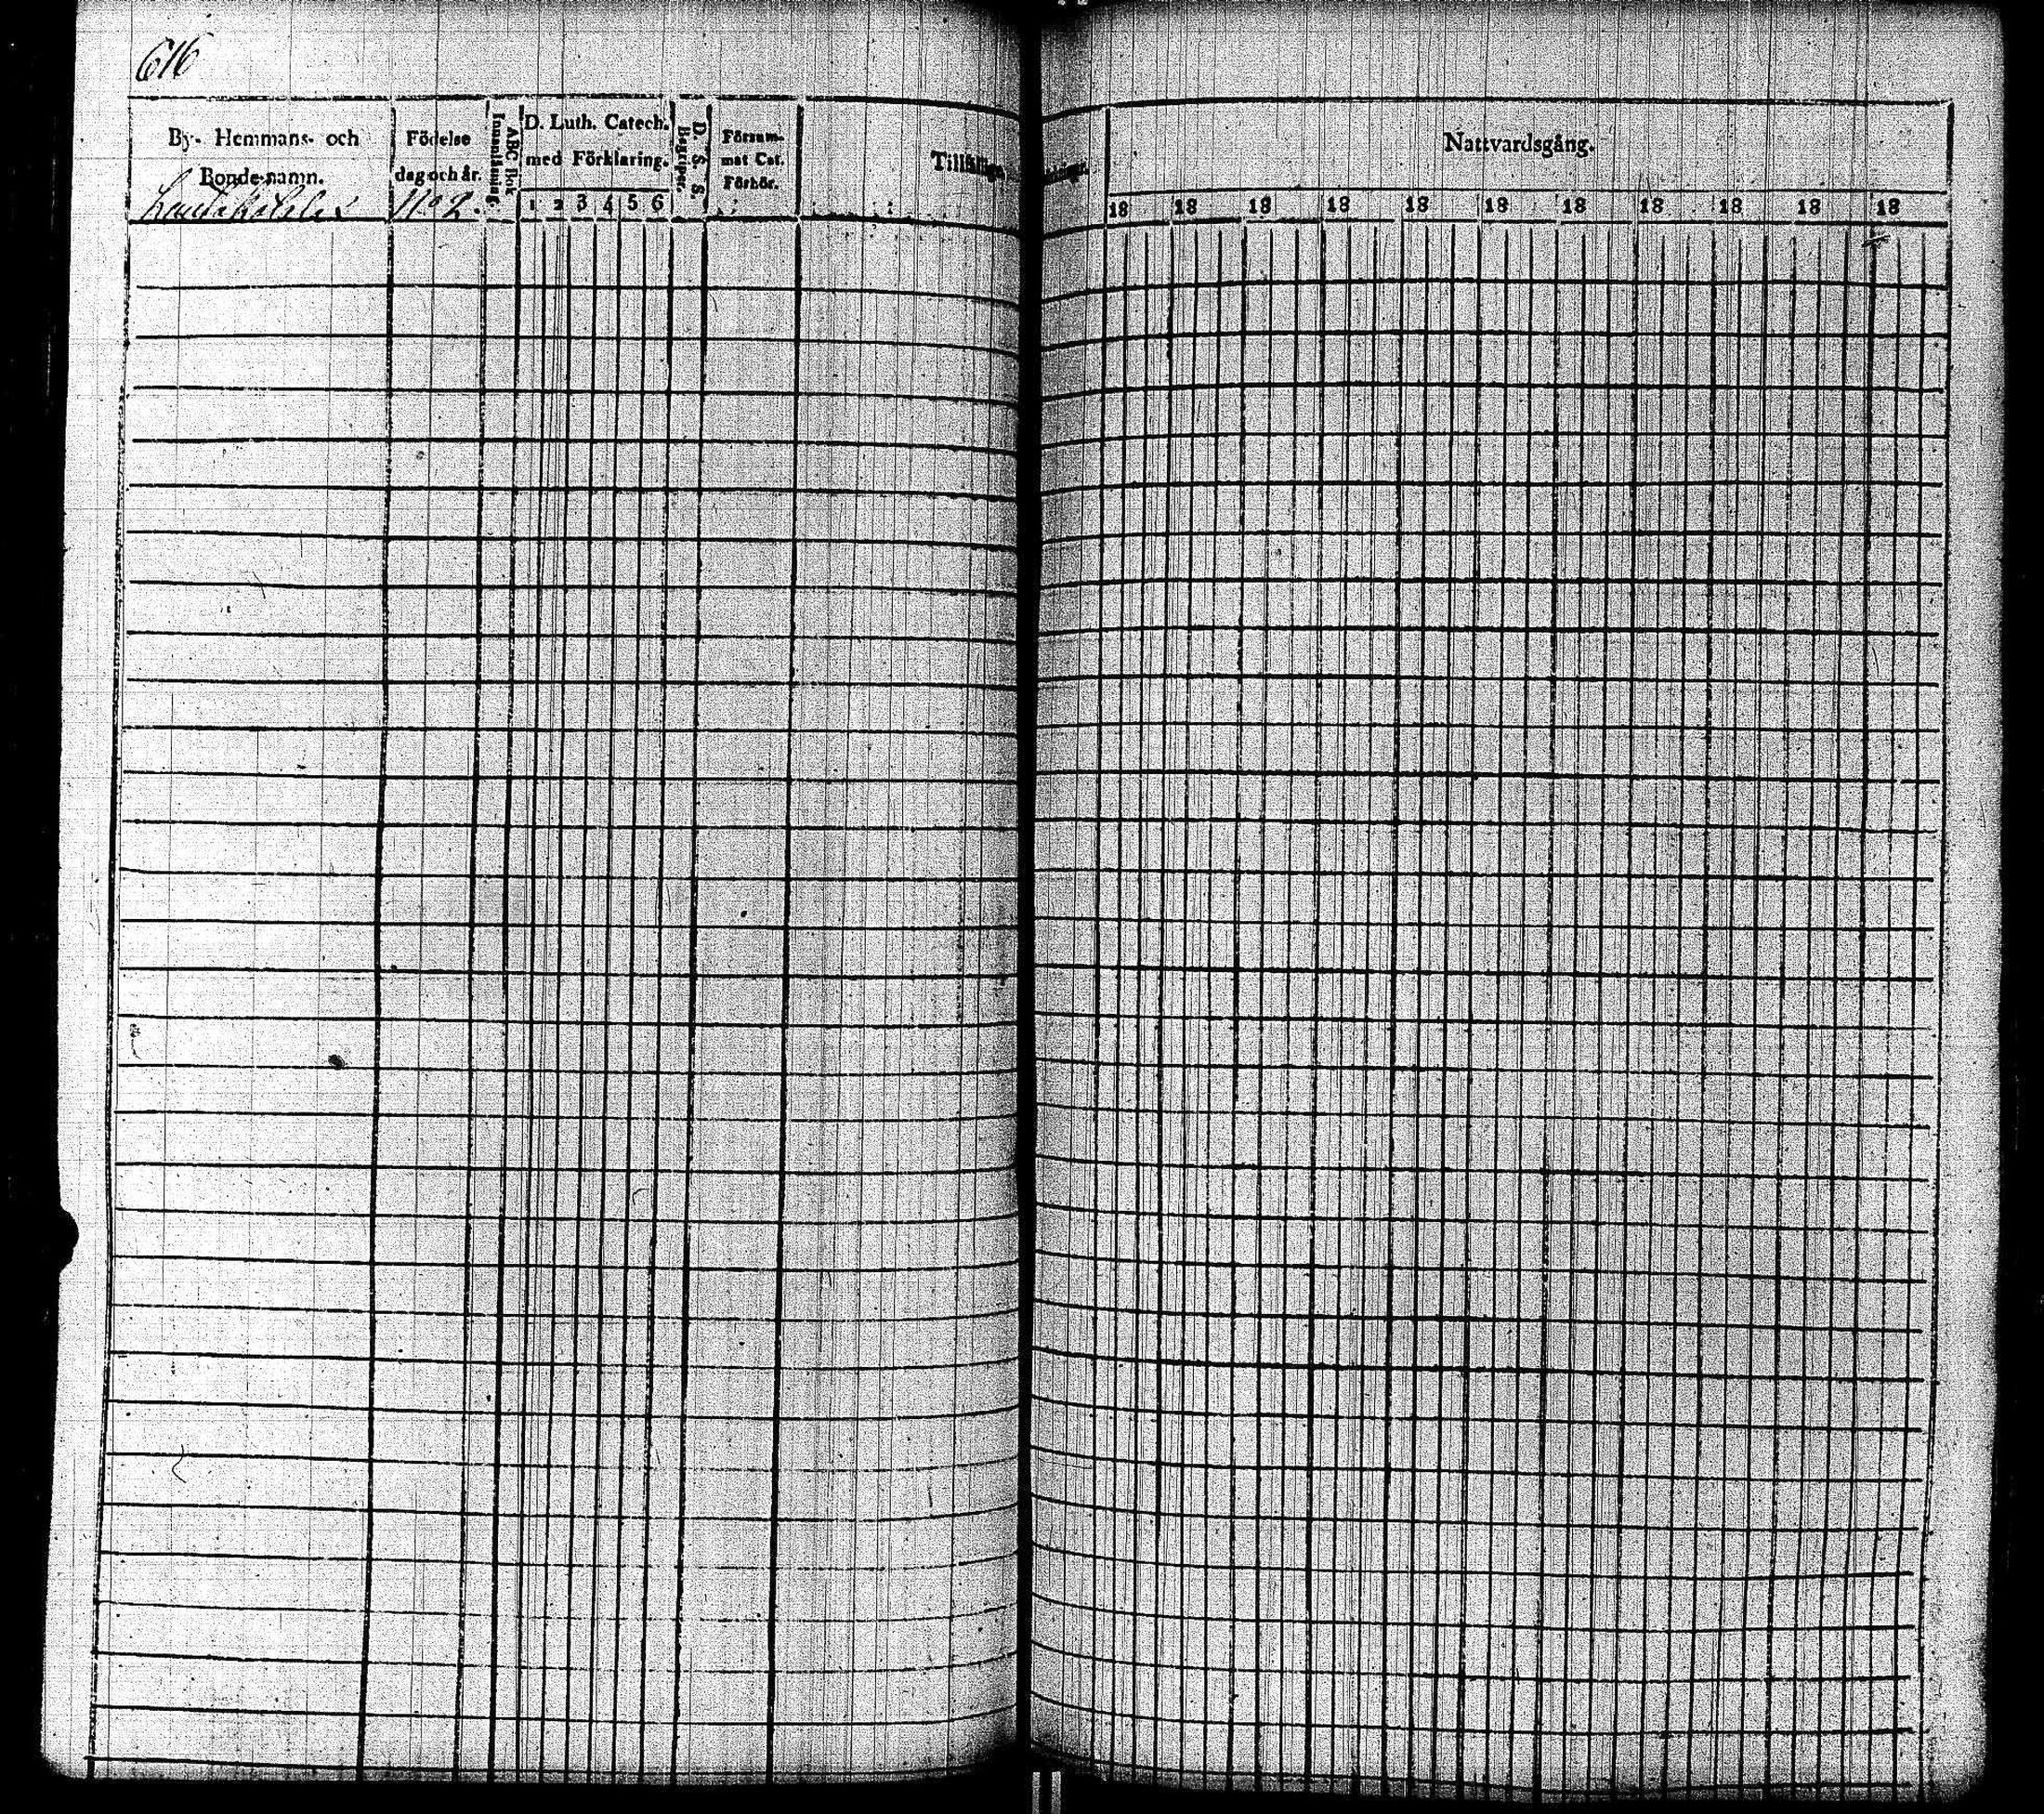 616
By- Hemmans- och
Bonde-namn.
Födelse
dag och år.
ABC Bok
Innanläsning.
D. Luth. Catech.
med Förklaring.
1 2 3 4 5 6
D. S. S.
Begriper.
Försum-
mat Cat.
Förhör.
No 2.
Nattvardsgång.
18 18 18 18 18 18 18 18 18 18 18